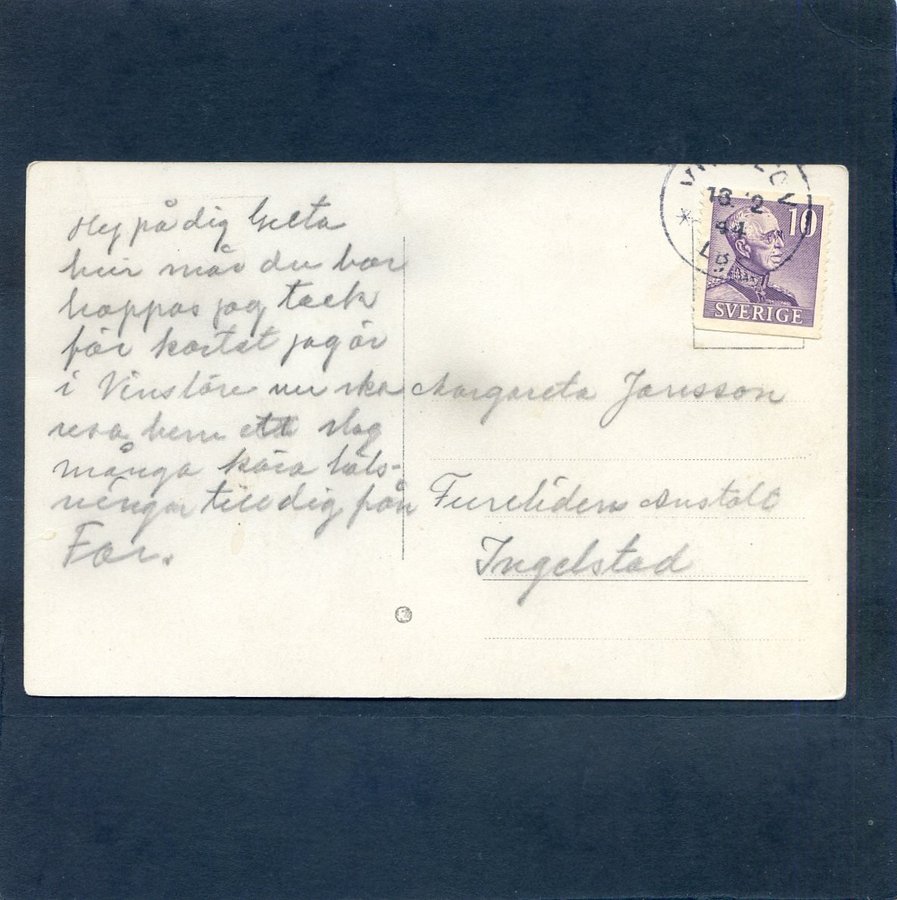 Hej på dig Greta
hur mår du bar
hoppas jag tack
för kortet jag är
i Vinslöv nu ska
resa hem ett slag
många kära häls-
ningar till dig från
Far.
18 12
44
10
SVERIGE
Margareta Jansson
Furulidens Anstalt
Ingelstad